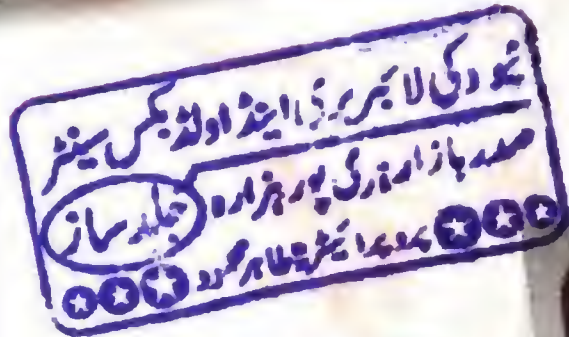 نیو دکی لائبریری اینڈ اولڈ بکس سینٹر
صدر بازار ہری پور ہزارہ
جلد ساز
طاہر محمود